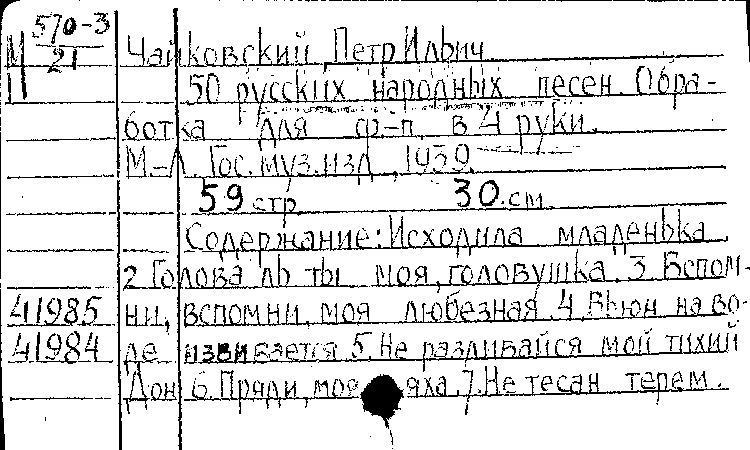 М 570-3
П 21
Чайковский Петр Ильич
50 русских народных песен. Обра-
ботка для ф-п. в 4 руки.
М-Л. Гос. муз. изд., 1939.
59 стр. 30 см.
Содержание: Исходила младенька
2 Голова ль ты моя, головушка. 3. Вспом-
41985 ни, вспомни, моя любезная 4. Вьюн на во-
41984 де извивается 5. Не разливайся мой тихий
Дон 6. Пряди, моя 7. Не тесан терем.